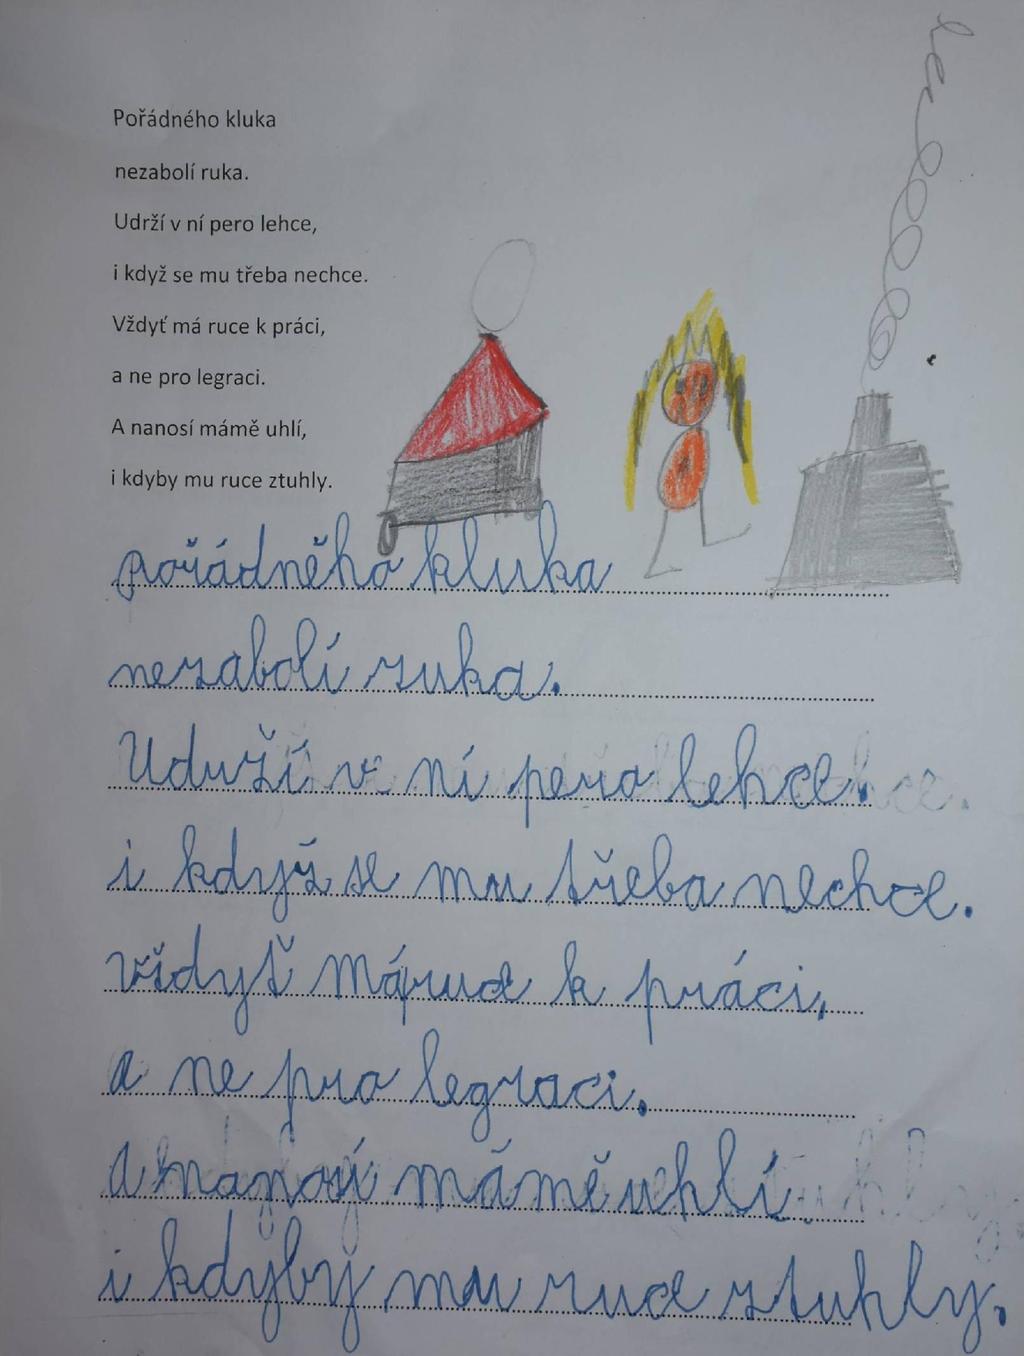 Pořádného kluka
nezabolí ruka.
Udrží v ní pero lehce,
i když se mu třeba nechce.
Vždyť má ruce k práci,
a ne pro legraci.
A nanosí mámě uhlí,
i kdyby mu ruce ztuhly.
pořádněho kluka
nezabolí ruka.
Udrží v ní pero lehce.
i když se mu třeba nechce.
vždyť má ruce k práci,
a ne pro legraci.
a nanosí mámě uhlí
i kdyby mu ruce ztuhly.